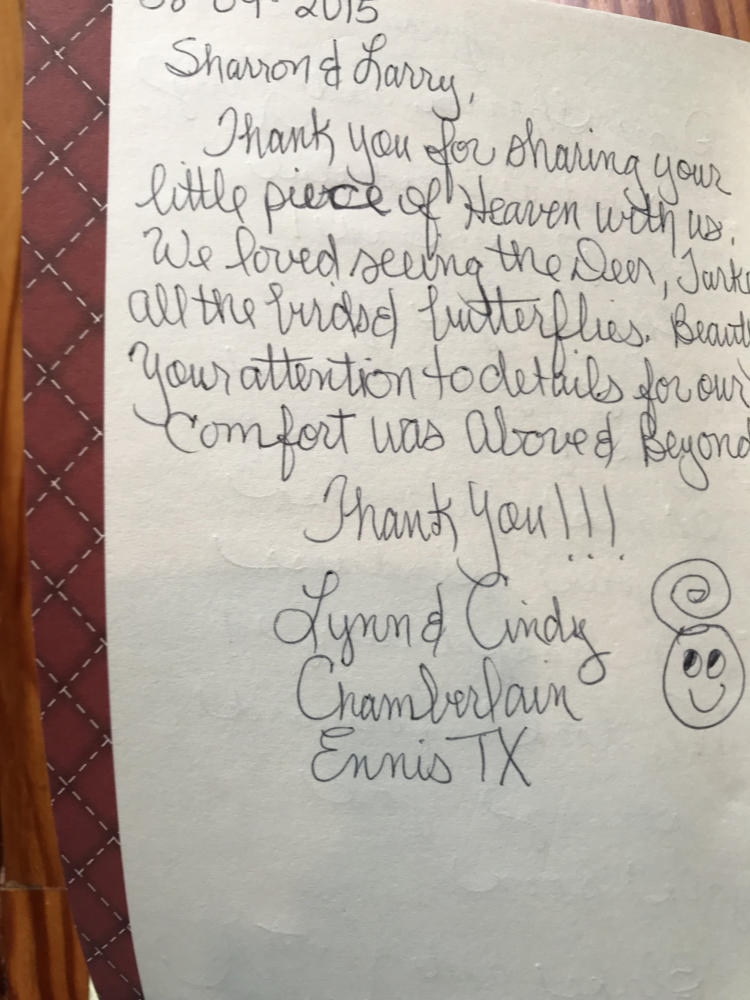 2015
Sharron & Larry,
Thank you for sharing your
little piece of Heaven with us.
We loved seeing the Deer,
all the birds & butterflies.
Your attention to details for our
Comfort was Above & Beyond
Thank You!!!
Lynn & Cindy
Chamberlain
Ennis TX